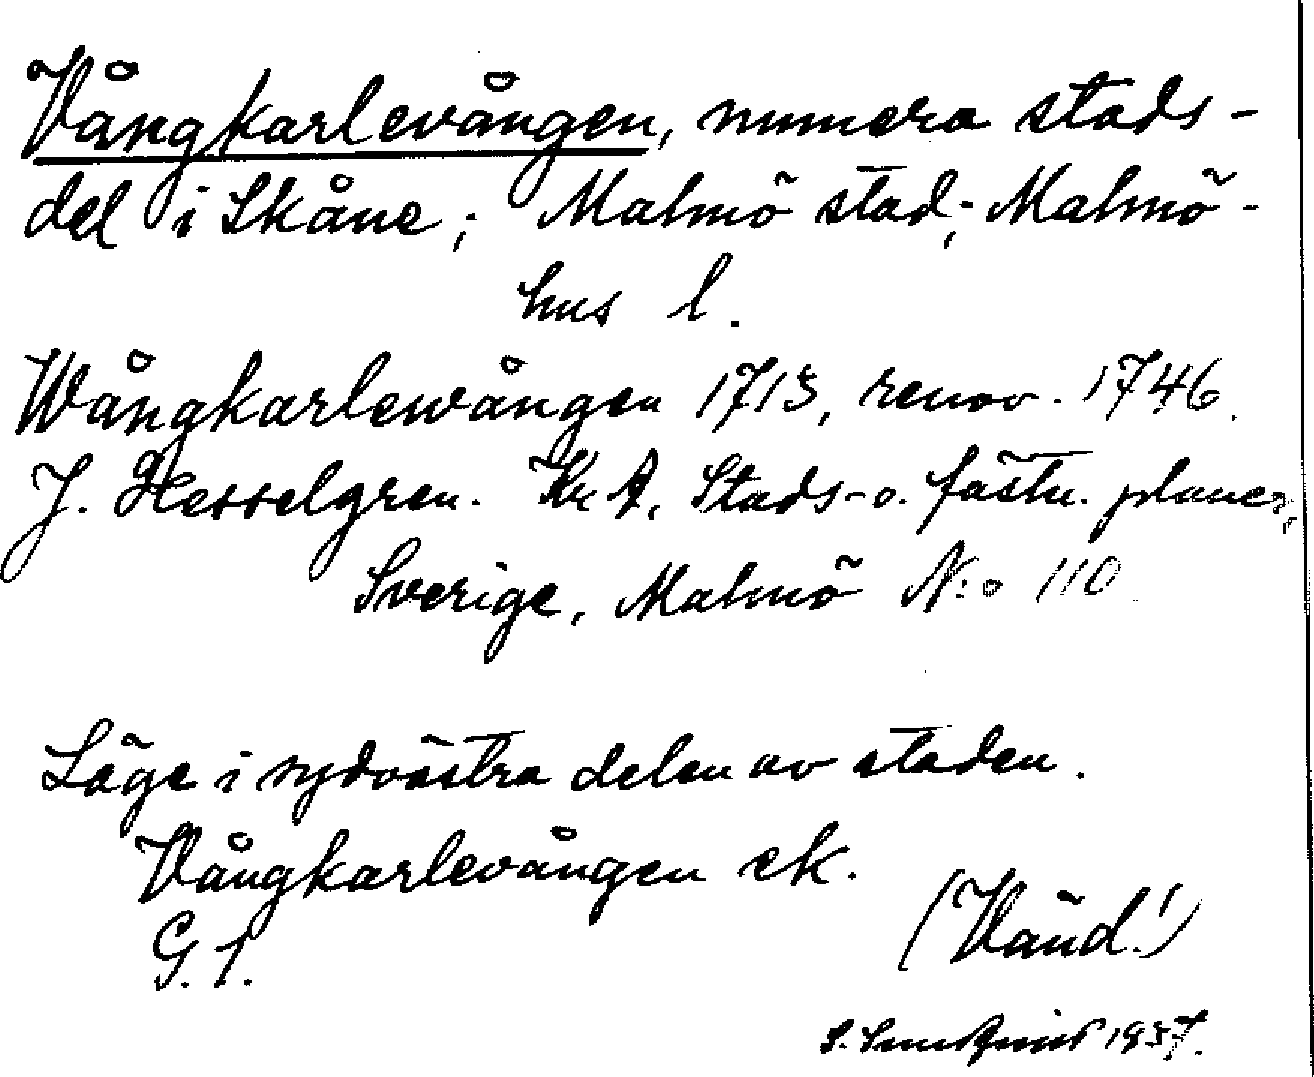 Vångkarlevången, numera stads-
del i Skåne; Malmö stad; Malmö-
hus l.
Wångkarlewången 1713, renov. 1746.
J. Hesselgren. Kr A. Stads- o. fästn. planer,
Sverige, Malmö N:o 110
Läge i sydvästra delen av staden.
Vångkarlevången ek.
G. 1.
(Vänd!)
S. 1937.